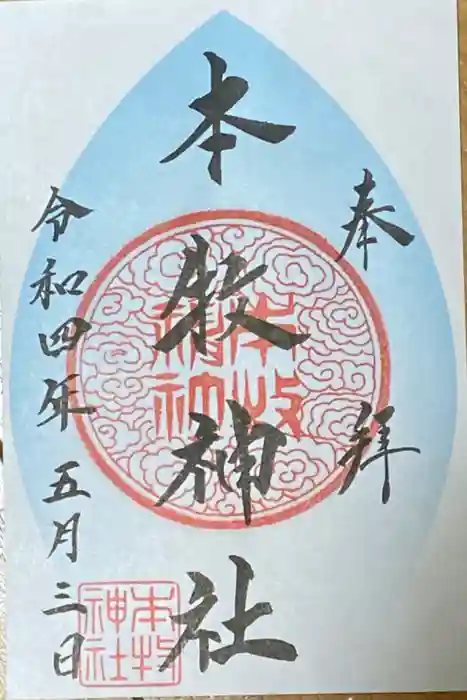 奉拝
本牧神社
令和四年五月三日
本牧神社